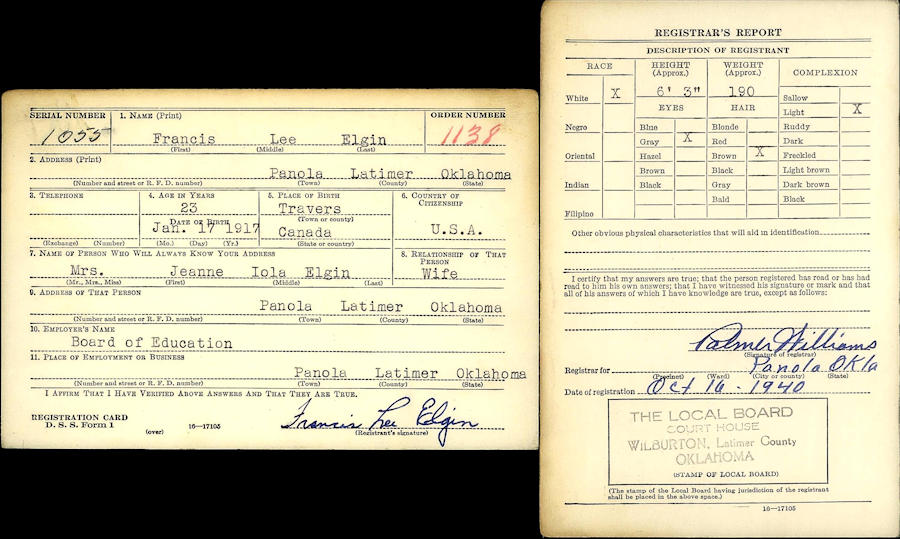 SERIAL NUMBER 1. NAME (Print) ORDER NUMBER
1055 Francis Lee Elgin 1138
(First) (Middle) (Last)
2. ADDRESS (Print)
Panola Latimer Oklahoma
(Number and street or R. F. D. number) (Town) (County) (State)
3. TELEPHONE 4. AGE IN YEARS 5. PLACE OF BIRTH 6. COUNTRY OF CITIZENSHIP
23 Travers
DATE OF BIRTH (Town or county)
Jan. 17 1917 Canada U.S.A.
(Exchange) (Number) (Mo.) (Day) (Yr.) (State or country)
7. NAME OF PERSON WHO WILL ALWAYS KNOW YOUR ADDRESS 8. RELATIONSHIP OF THAT PERSON
Mrs. Jeanne Iola Elgin Wife
(Mr., Mrs., Miss) (First) (Middle) (Last)
9. ADDRESS OF THAT PERSON
Panola Latimer Oklahoma
(Number and street or R. F. D. number) (Town) (County) (State)
10. EMPLOYER'S NAME
Board of Education
11. PLACE OF EMPLOYMENT OR BUSINESS
Panola Latimer Oklahoma
(Number and street or R. F. D. number) (Town) (County) (State)
I AFFIRM THAT I HAVE VERIFIED ABOVE ANSWERS AND THAT THEY ARE TRUE.
REGISTRATION CARD
D. S. S. Form 1 (over) 16—17105
Francis Lee Elgin
(Registrant's signature)
REGISTRAR'S REPORT
DESCRIPTION OF REGISTRANT
RACE HEIGHT (Approx.) WEIGHT (Approx.) COMPLEXION
White X 6' 3" 190 Sallow
EYES HAIR Light X
Negro Blue Blonde Ruddy
Gray X Red Dark
Oriental Hazel Brown X Freckled
Brown Black Light brown
Indian Black Gray Dark brown
Bald Black
Filipino
Other obvious physical characteristics that will aid in identification
I certify that my answers are true; that the person registered has read or has had
read to him his own answers; that I have witnessed his signature or mark and that
all of his answers of which I have knowledge are true, except as follows:
Palmer Williams
(Signature of registrar)
Registrar for Panola Okla
(Precinct) (Ward) (City or county) (State)
Date of registration Oct 16 - 1940
THE LOCAL BOARD
COURT HOUSE
WILBURTON, Latimer County
OKLAHOMA
(STAMP OF LOCAL BOARD)
(The stamp of the Local Board having jurisdiction of the registrant
shall be placed in the above space.)
16—17105